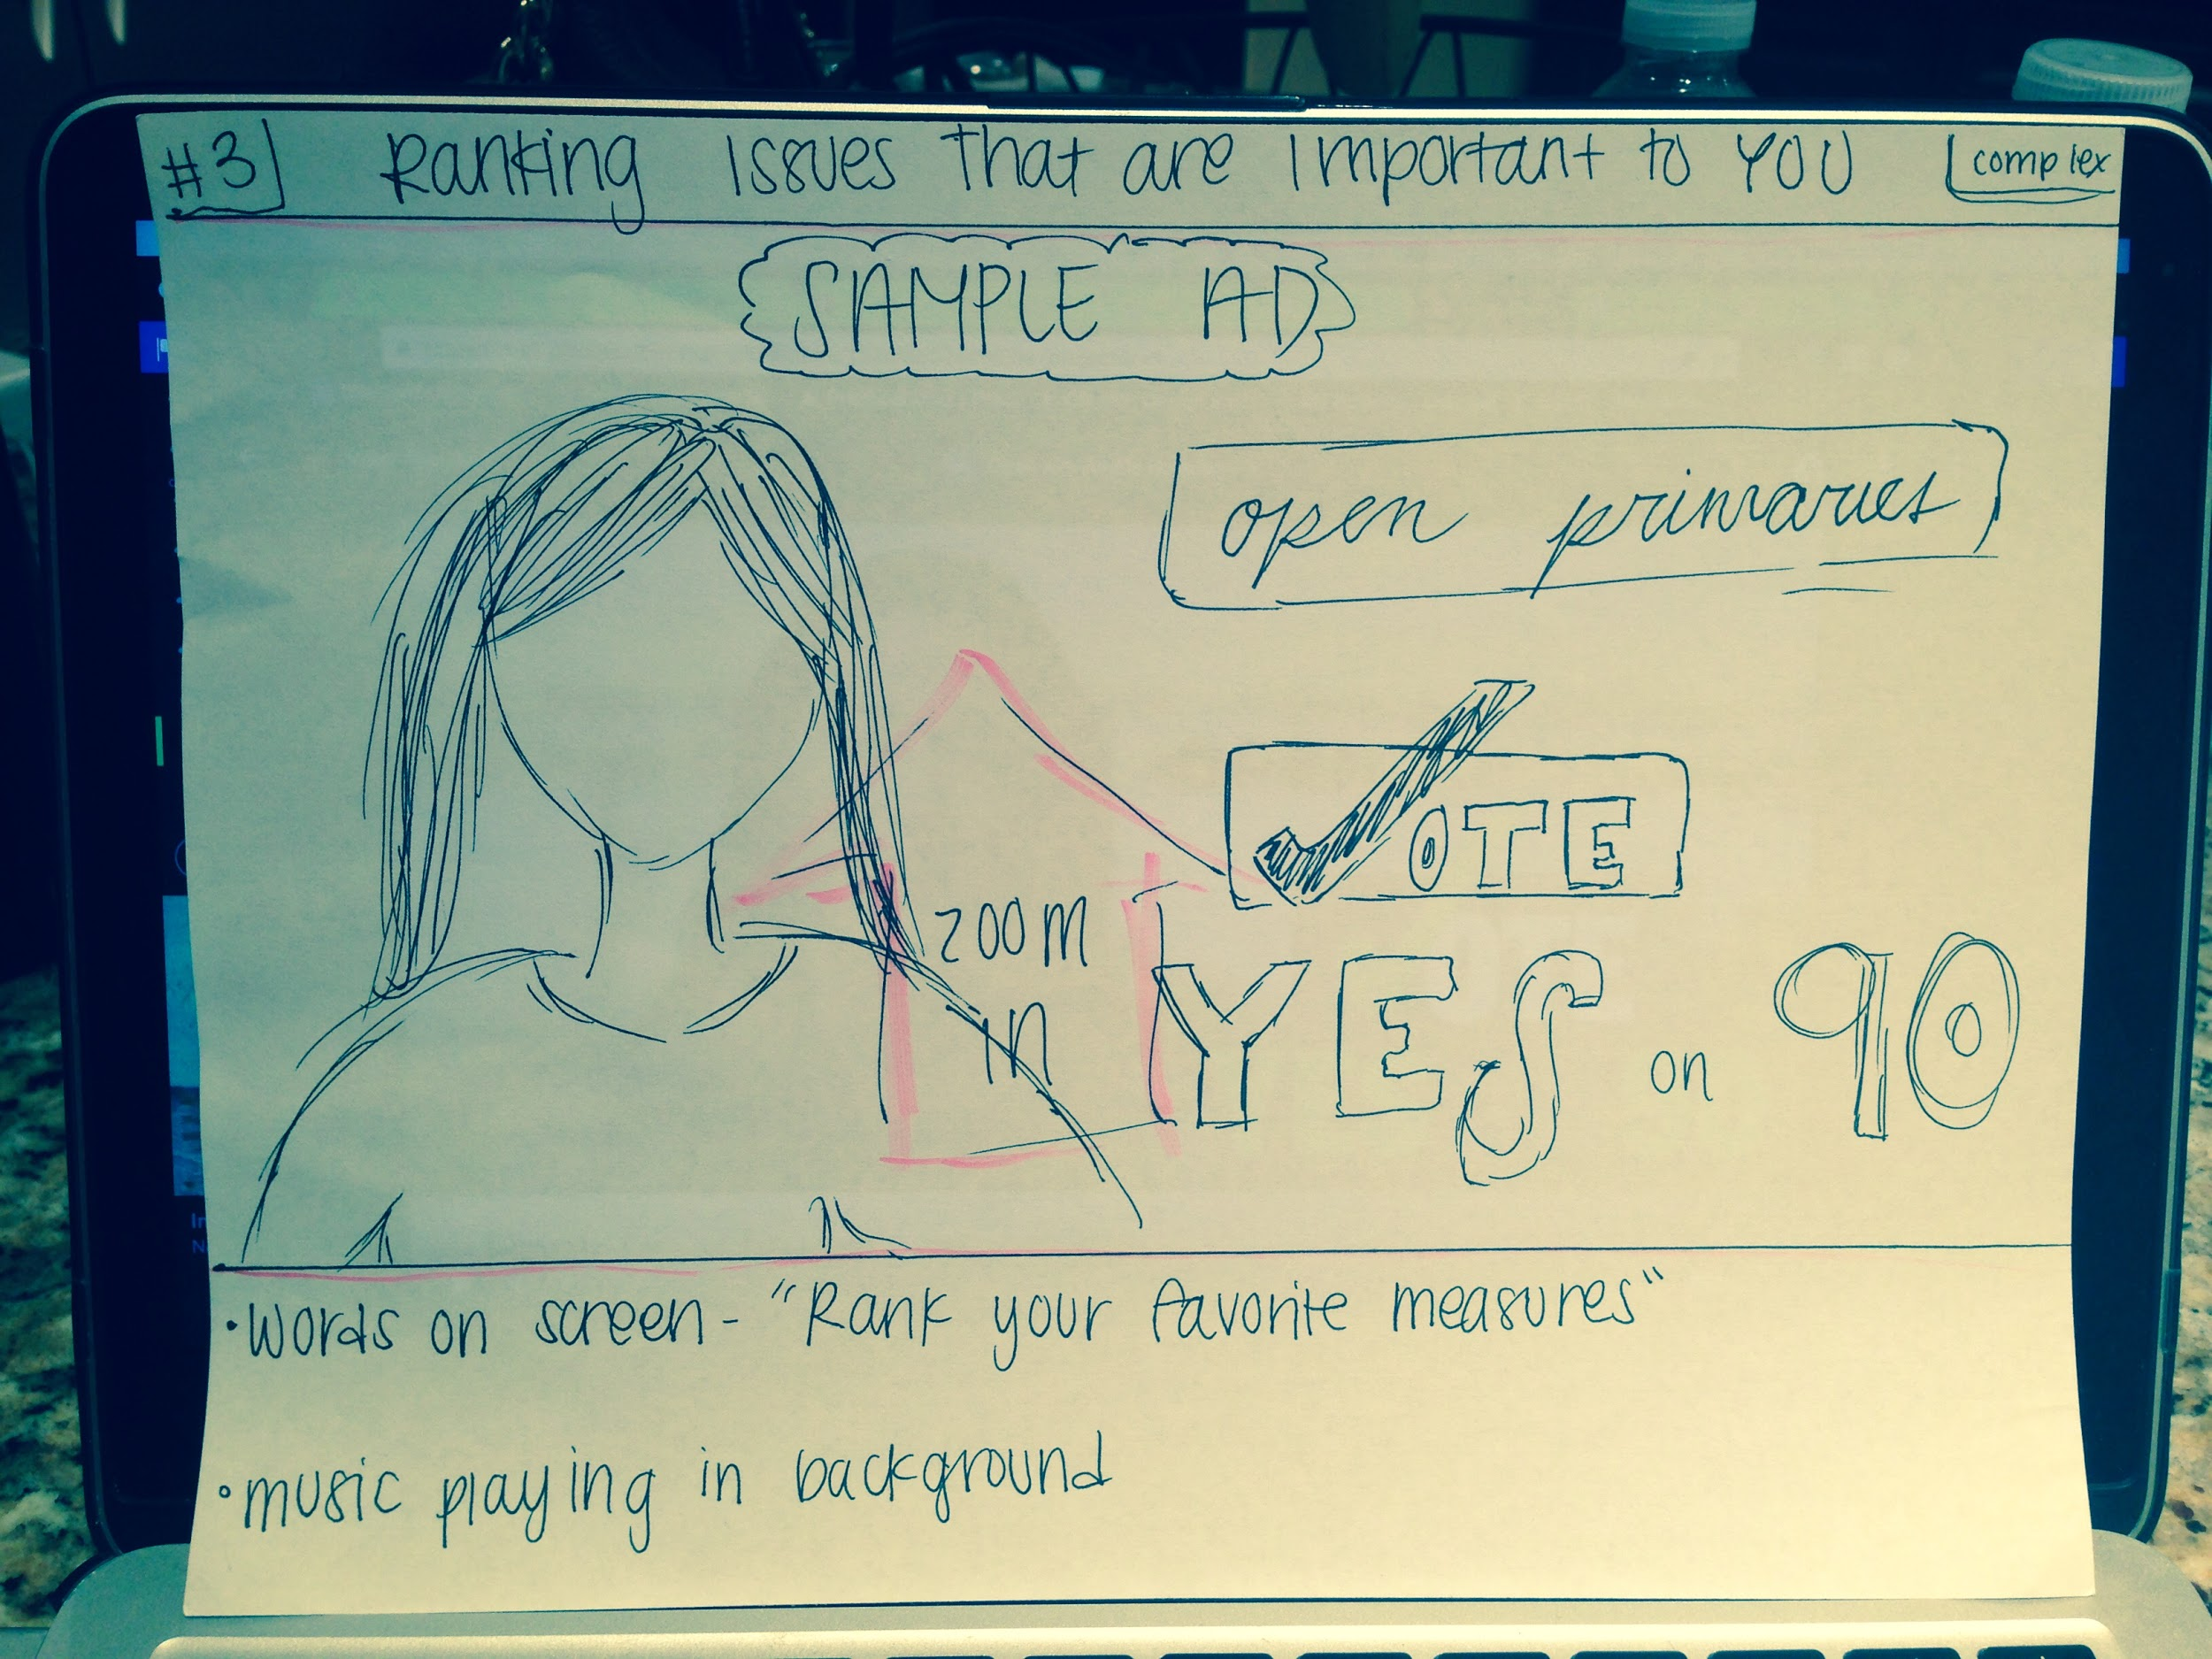 #3 Ranking Issues that are Important to YOU complex
SAMPLE AD
open primaries
VOTE
zoom
in
YES on 90
• Words on screen - "Rank your favorite measures"
• music playing in background